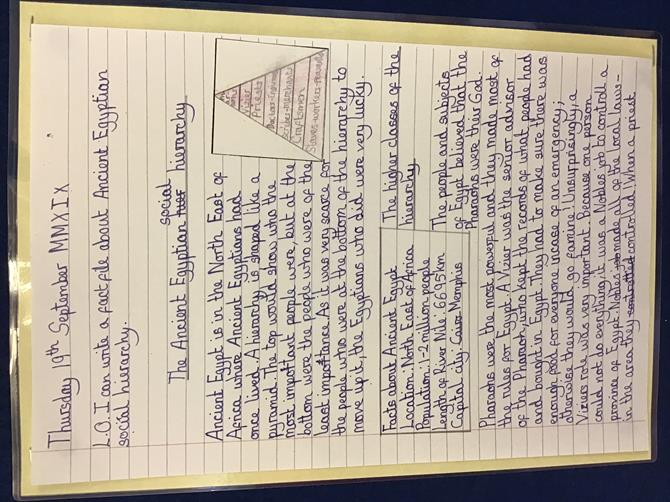 Thursday 19th September MMXIX
L.O. I can write a fact file about Ancient Egyptian
social hierarchy.
social
The Ancient Egyptian hierarchy
Ancient Egypt is in the North East of
Africa where Ancient Egyptians had
once lived. A hierarchy is shaped like a
pyramid. The top would show, who the
most important people were, but at the
bottom were the people who were of the
least importance. As it was very scarce for
the people who were at the bottom of the hierarchy to
move up it, the Egyptians who did were very lucky.
Vizier
Priests
Craftsmen
Slaves-workers-peasants
Facts about Ancient Egypt
Location: North East of Africa
Population: 1-2 million people
Length of River Nile: 6695km
Capital city: Cairo Memphis
The higher classes of the
hierarchy
The people and subjects
of Egypt believed that the
Pharaohs were their God.
Pharaohs were the most powerful and they made most of
the rules for Egypt. A Vizier was the senior advisor
of the Pharaoh, who kept the records of what people had
and bought in Egypt. They had to make sure there was
enough food for everyone incase of an emergency;
otherwise they would go famine! Unsurprisingly, a
Viziers role was very important. Because one person
could not do everything, it was a Nobles job to control a
province of Egypt. Nobles made all of the local laws-
in the area they controlled! When a priest